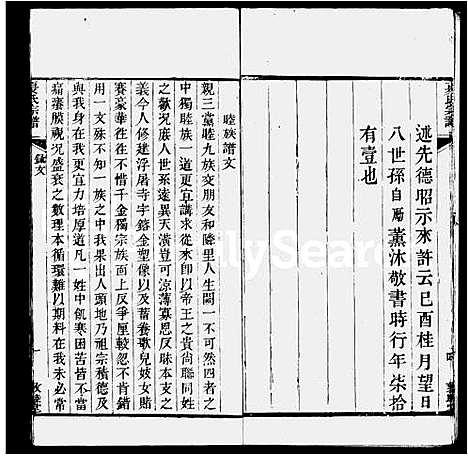 述先德昭示來許云己酉桂月望日
八世孫自勵薰沐敬書時行年柒拾
有壹也
睦族譜文
親三黨睦九族交朋友和隣里人生闕一不可然四者之
中獨睦族一道更宜講求從來師以帝王之貴尚聯同姓
之歡以庶人世系遠異天潢豈可涼薄寡恩反昧本支之
義今人修建浮屠寺宇鎔金塑像以及蓄養歌兒妓女賭
賽豪華往往不惜千金獨宗族面上反爭厘較忽不肯錯
用一文殊不知一族之中我果出人頭地乃祖宗積德及
與我身在我更宜力培厚道凡一姓中飢寒困苦皆不
痛癢膜視况盛衰之數理本循環難以期料在我未必常
袁氏宗譜
譜文
FamilySearch